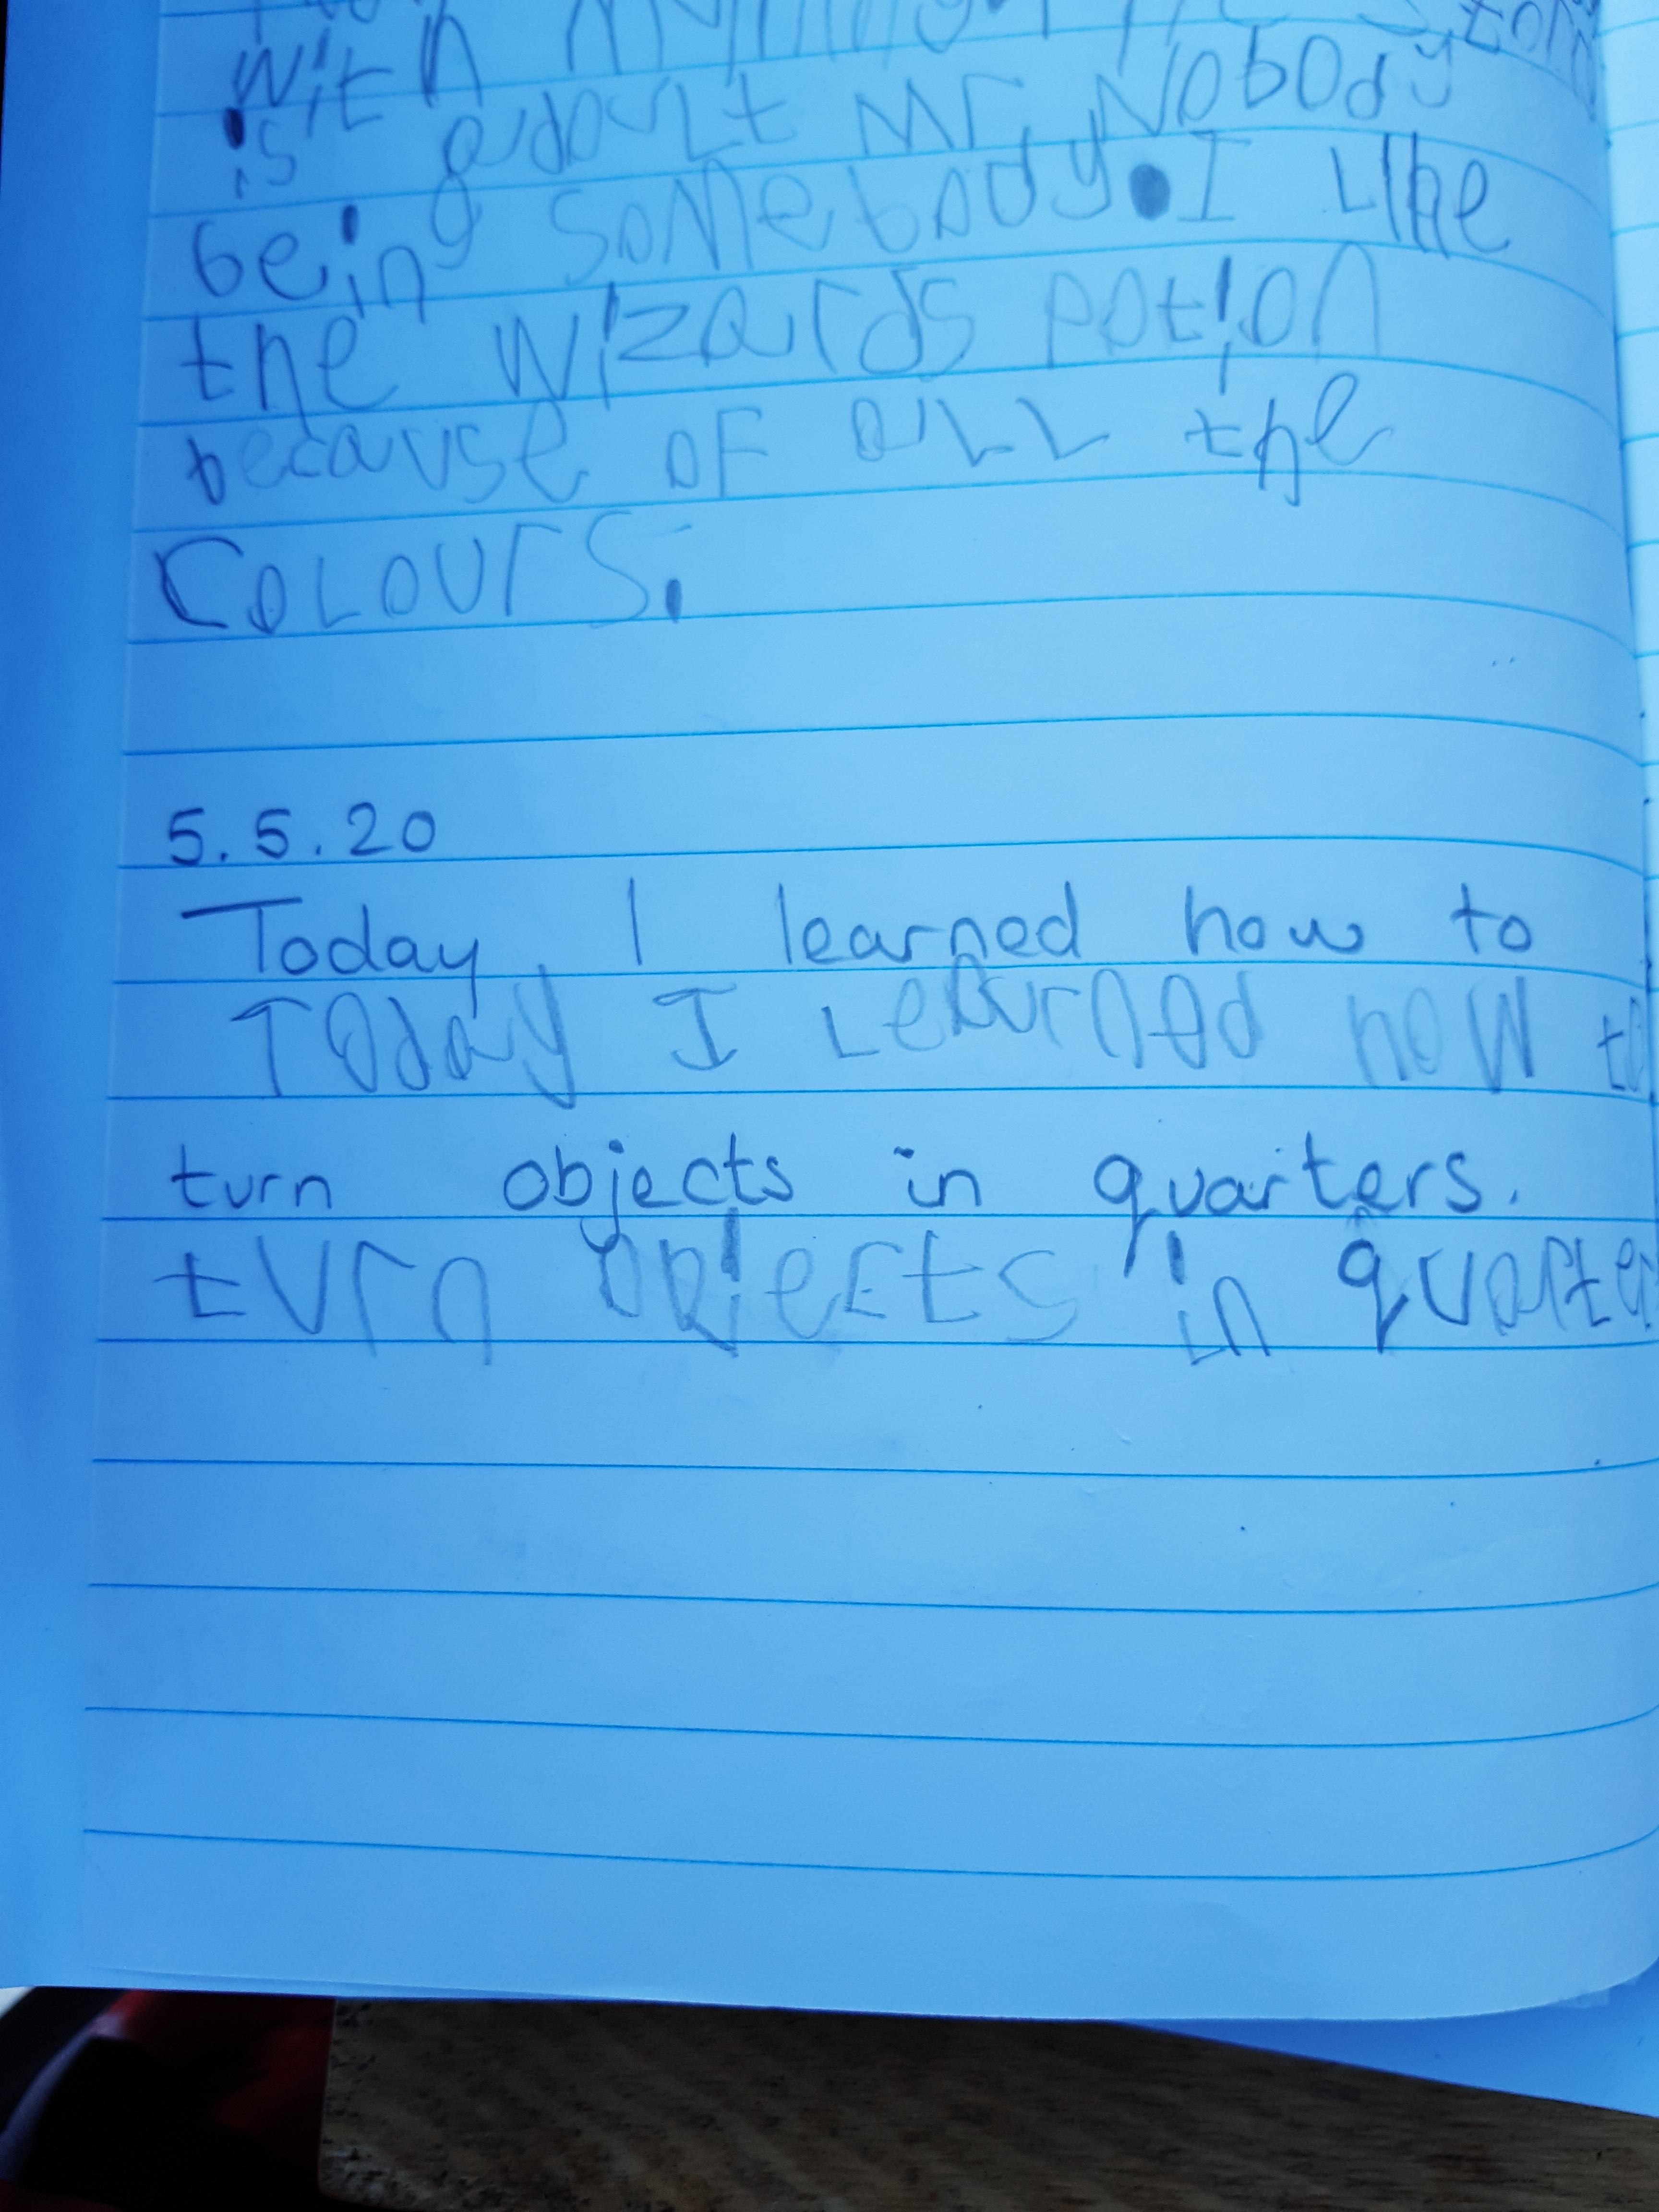 with
is adoult Mr. Nobody
being somebody. I like
the wizards potion
because of all the
colours.
5.5.20
Today, I learned how to
Today I Learned how to
turn objects in quarters.
turn objects in quarte